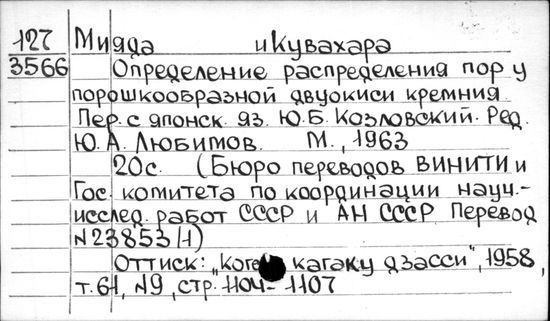 127 Мияда и Кувахара
3566 Определение распределения пор у
порошкообразной двуокиси кремния.
Пер. с японск. яз. Ю.Б. Козловский. Ред.
Ю.А. Любимов. М., 1963
20с. (Бюро переводов ВИНИТИ и
Гос. комитета по координации науч.-
исслед. работ СССР и АН СССР. Перевод
N23853/1)
Оттиск: „ кагаку дзасси", 1958,
т.61, N9, стр. 1104-1107